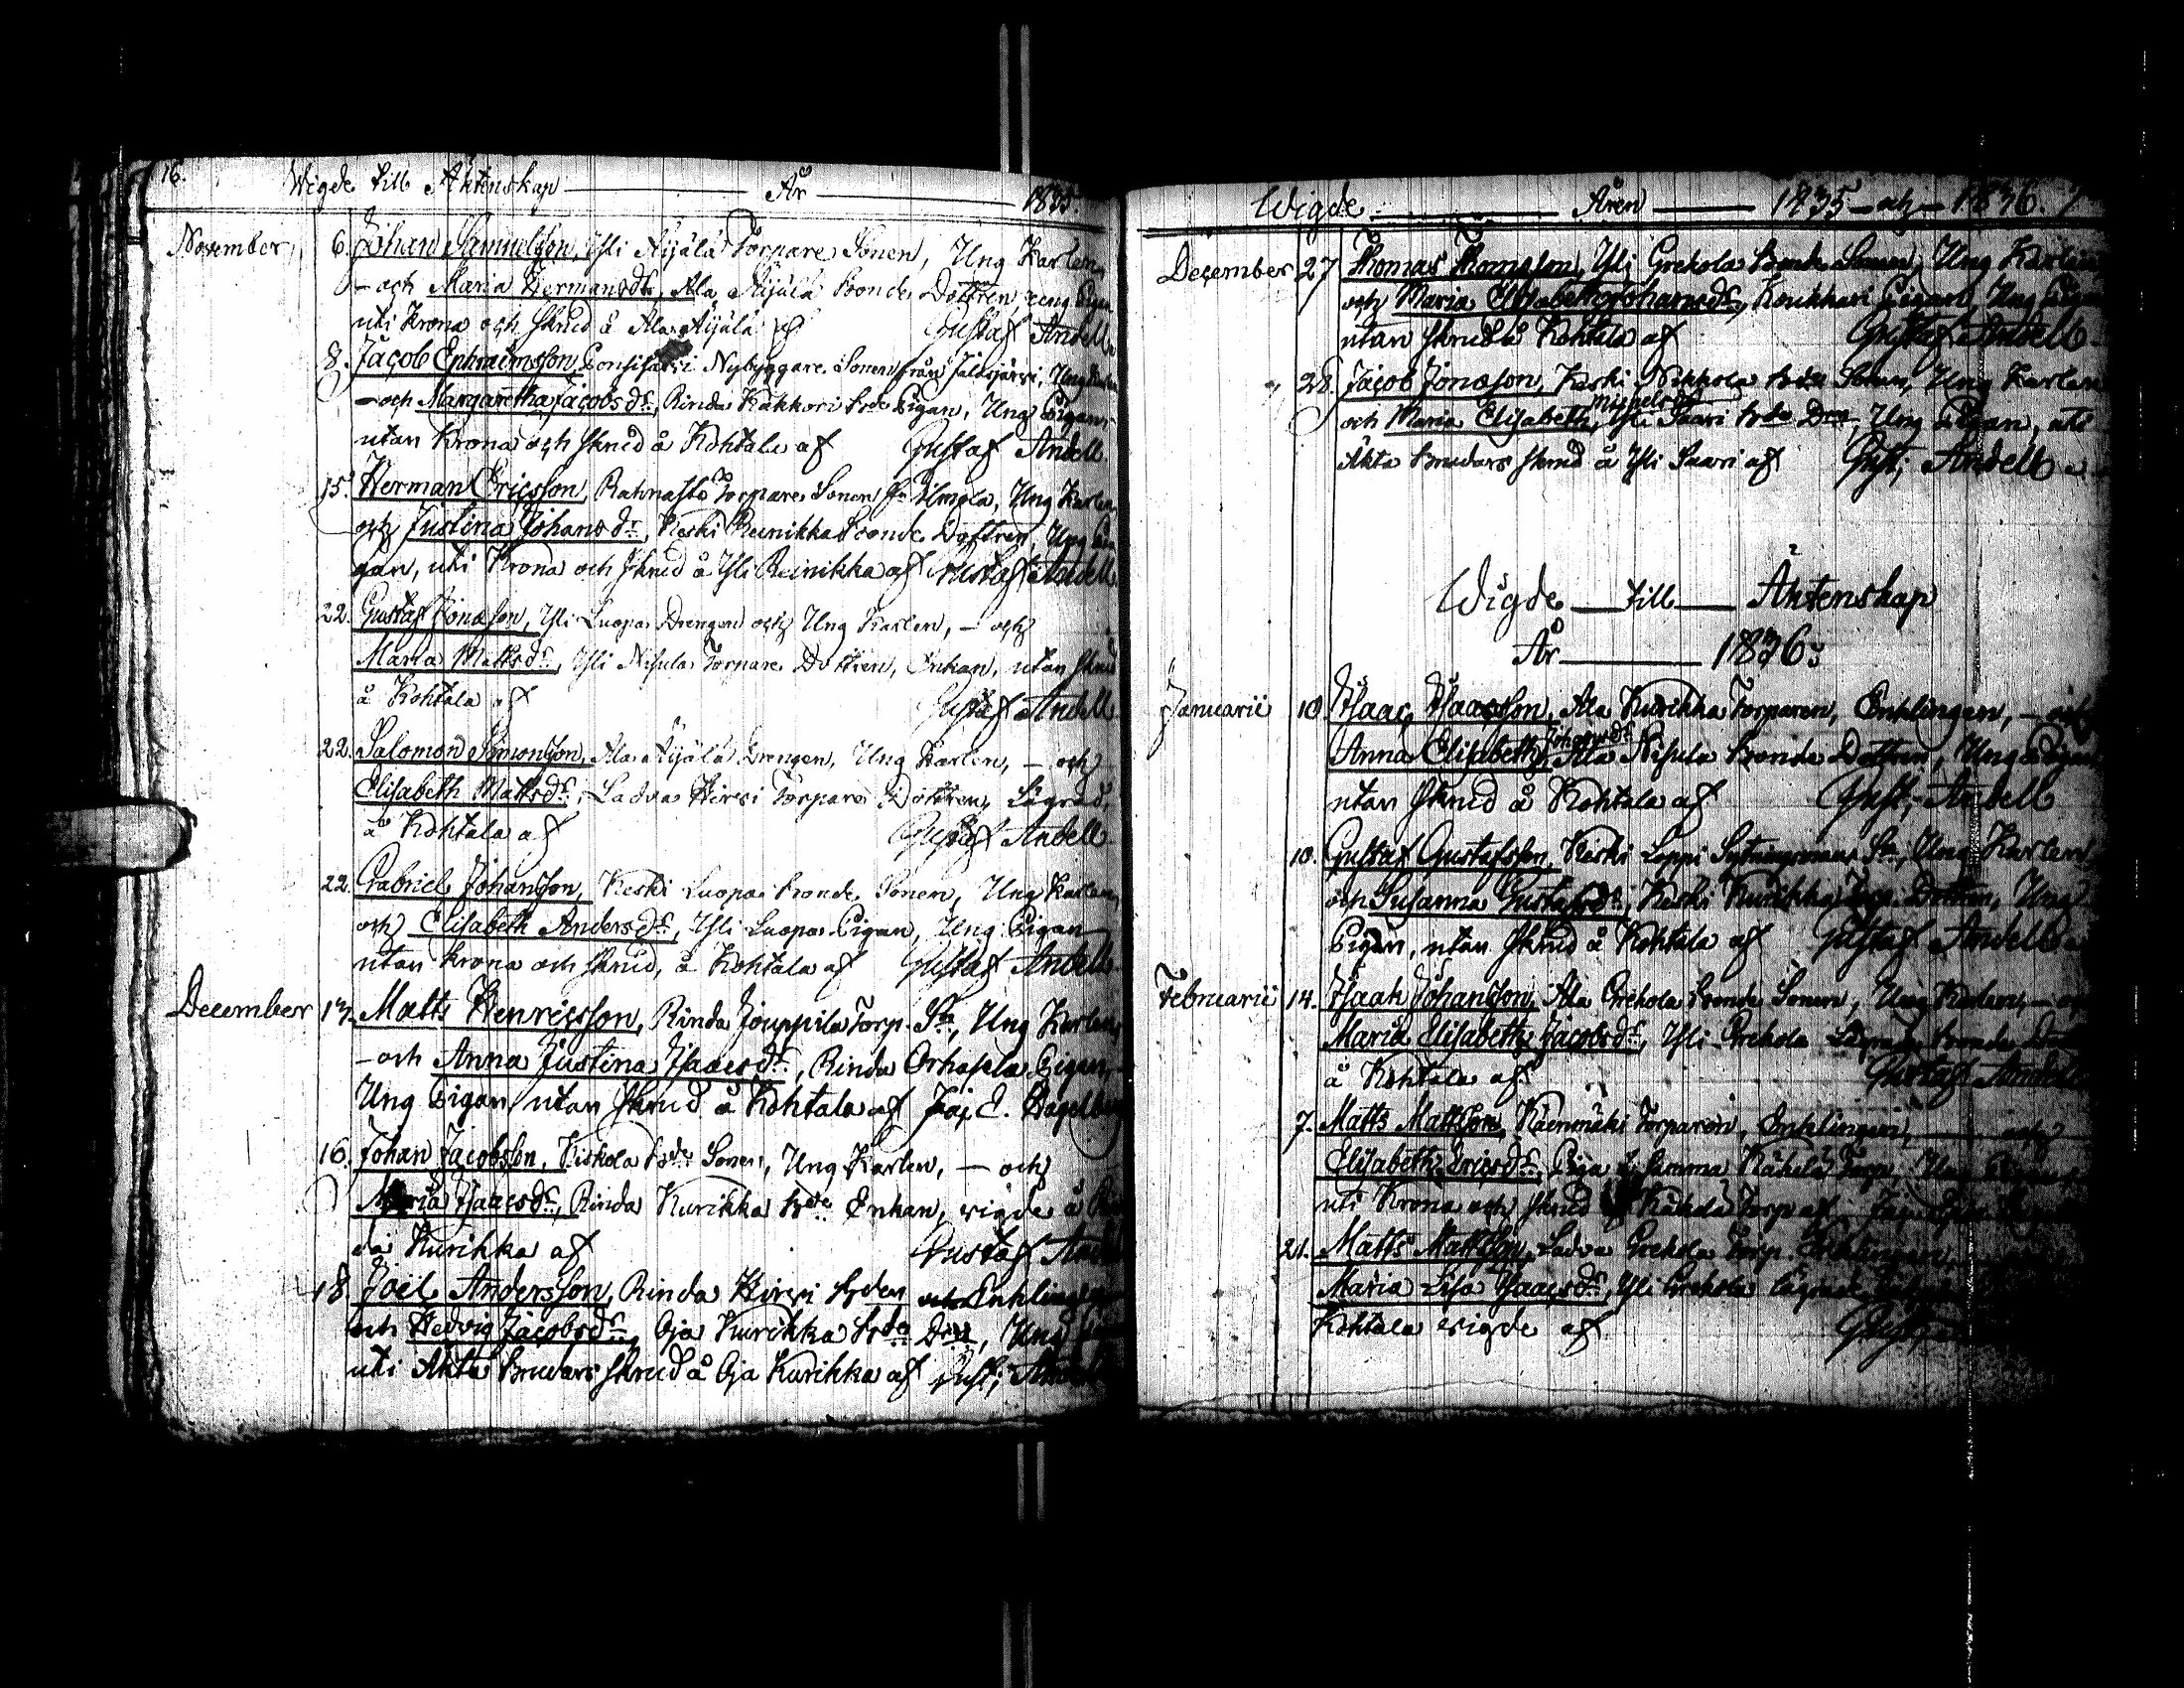 16.
Wigde till Äktenskap År 1835.
November 6. Johan Samuelsson, Yli Äijälä Torpare Sonen, Ung Karlen,
- och Maria Hermansdr, Ala Äijälä Bonde Dottren Ung Pigan
uti Krona och skrud å Ala Äijälä af Gustaf Andell.
8. Jacob Ephraimsson, Nybyggare Sonen från Jalasjärvi, Ung
- och Margaretha Jacobsdr, Rinda Kakkori bde Pigan, Ung Pigan,
utan Krona och skrud å Kohtala af Gustaf Andell.
15. Herman Ericsson, Torpare Sonen fr Ilmola, Ung Karlen,
och Justina Johansdr, Keski Reinikka Bonde Dottren, Ung Pi
gan, uti Krona och skrud å Yli Reinikka af Gustaf Andell
22. Gustaf Jonasson, Yli Luopa Drengen och Ung Karlen, - och
Maria Mattsdr, Yli Nisula Torpare Dottren, Enkan, utan skrud
å Kohtala af Gustaf Andell.
22. Salomon Simonsson, Ala Äijälä Drengen, Ung Karlen, - och
Elisabeth Mattsdr, Ladva Hirsi Torpare Dottren, Lägrad,
å Kohtala af Gustaf Andell.
22. Gabriel Johansson, Keski Luopa Bonde Sonen, Ung Karlen,
och Elisabeth Andersdr, Yli Luopa Pigan, Ung Pigan
utan Krona och skrud, å Kohtala af Gustaf Andell.
December 13. Matts Henricsson, Rinda Jouppila Torp. Sn, Ung Karlen,
- och Anna Justina Isaacsdr, Rinda Pigan,
Ung Pigan, utan skrud å Kohtala af
16. Johan Jacobsson, Kiskola bde Sonen, Ung Karlen, - och
Maria Isaacsdr, Rinda Kurikka bde Enkan, vigde å Rin
da Kurikka af Gustaf
18 Joel Andersson, Rinda Hirsi bden Enklingen
och Hedvig Jacobsdr, Oja Kurikka bde Dren, Ung
uti Äkta Brudars skrud å Oja Kurikka af Gust;
Wigde Åren 1835 och 1836.
December 27 Thomas Thomasson, Yli Grekola Bonde Sonen, Ung Karlen
och Maria Elisabeth Johansdr, Koukkari Pigan, Ung Pigan
utan skrud å Kohtala af Gustaf Andell
28. Jacob Jonasson, Keski Nikkola bde Sonen, Ung Karlen
och Maria Elisabeth Michelsdr, Yli Saari bde Dren, Ung Pigan, uti
Äkta Brudars skrud å Yli Saari af Gust; Andell
Wigde till Äktenskap
År 1836;
Januarii 10 Isaac Isaacsson, Ala Kurikka Torparen, Enklingen, - och
Anna Elisabeth Johansdr, Ala Nisula Bonde Dottren, Ung Pigan
utan skrud å Kohtala af Gust; Andell
10. Gustaf Gustafsson, Keski Loppi Sytningsmans Sn, Ung Karlen
och Susanna Gustafsdr, Keski Kurikka Torp. Dottren, Ung
Pigan, utan skrud å Kohtala af Gustaf Andell
Februarii 14. Isaak Johansson, Ala Grekola Bonde Sonen, Ung Karlen, - och
Maria Elisabeth Jacobsdr, Yli Grekola Bonde
å Kohtala af Gustaf Andell
7. Matts Mattsson, Torparen, Enklingen, och
Elisabeth Ericsdr,
uti Krona och skrud
21. Matts Mattsson, Ladva Grekola Torp. Enklingen,
Maria Lisa Isaacsdr, Yli Grekola
Kohtala vigde af Gust;